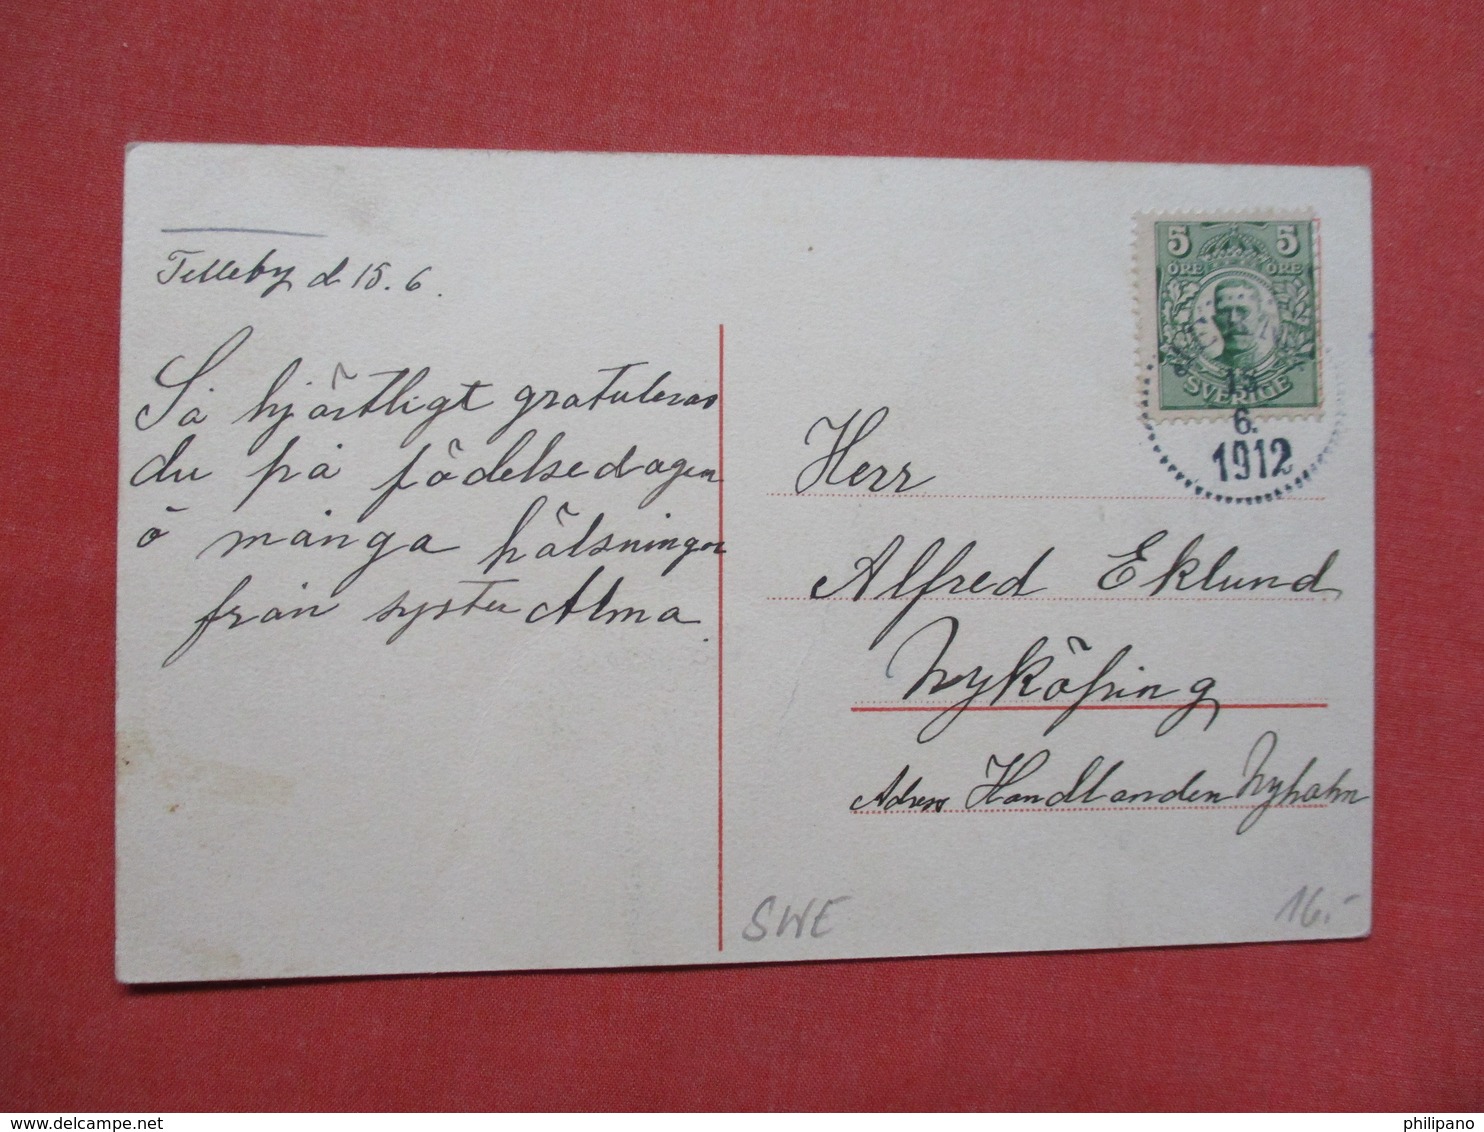 Telleby d 15. 6.
Så hjärtligt gratuleras
du på födelsedagen
o många hälsningar
från syster Alma.
5 5
ÖRE ÖRE
SVERIGE
15
6.
1912
Herr
Alfred Eklund
Nyköping
Adress Handlanden Nyholm
SWE
16.-
philipano